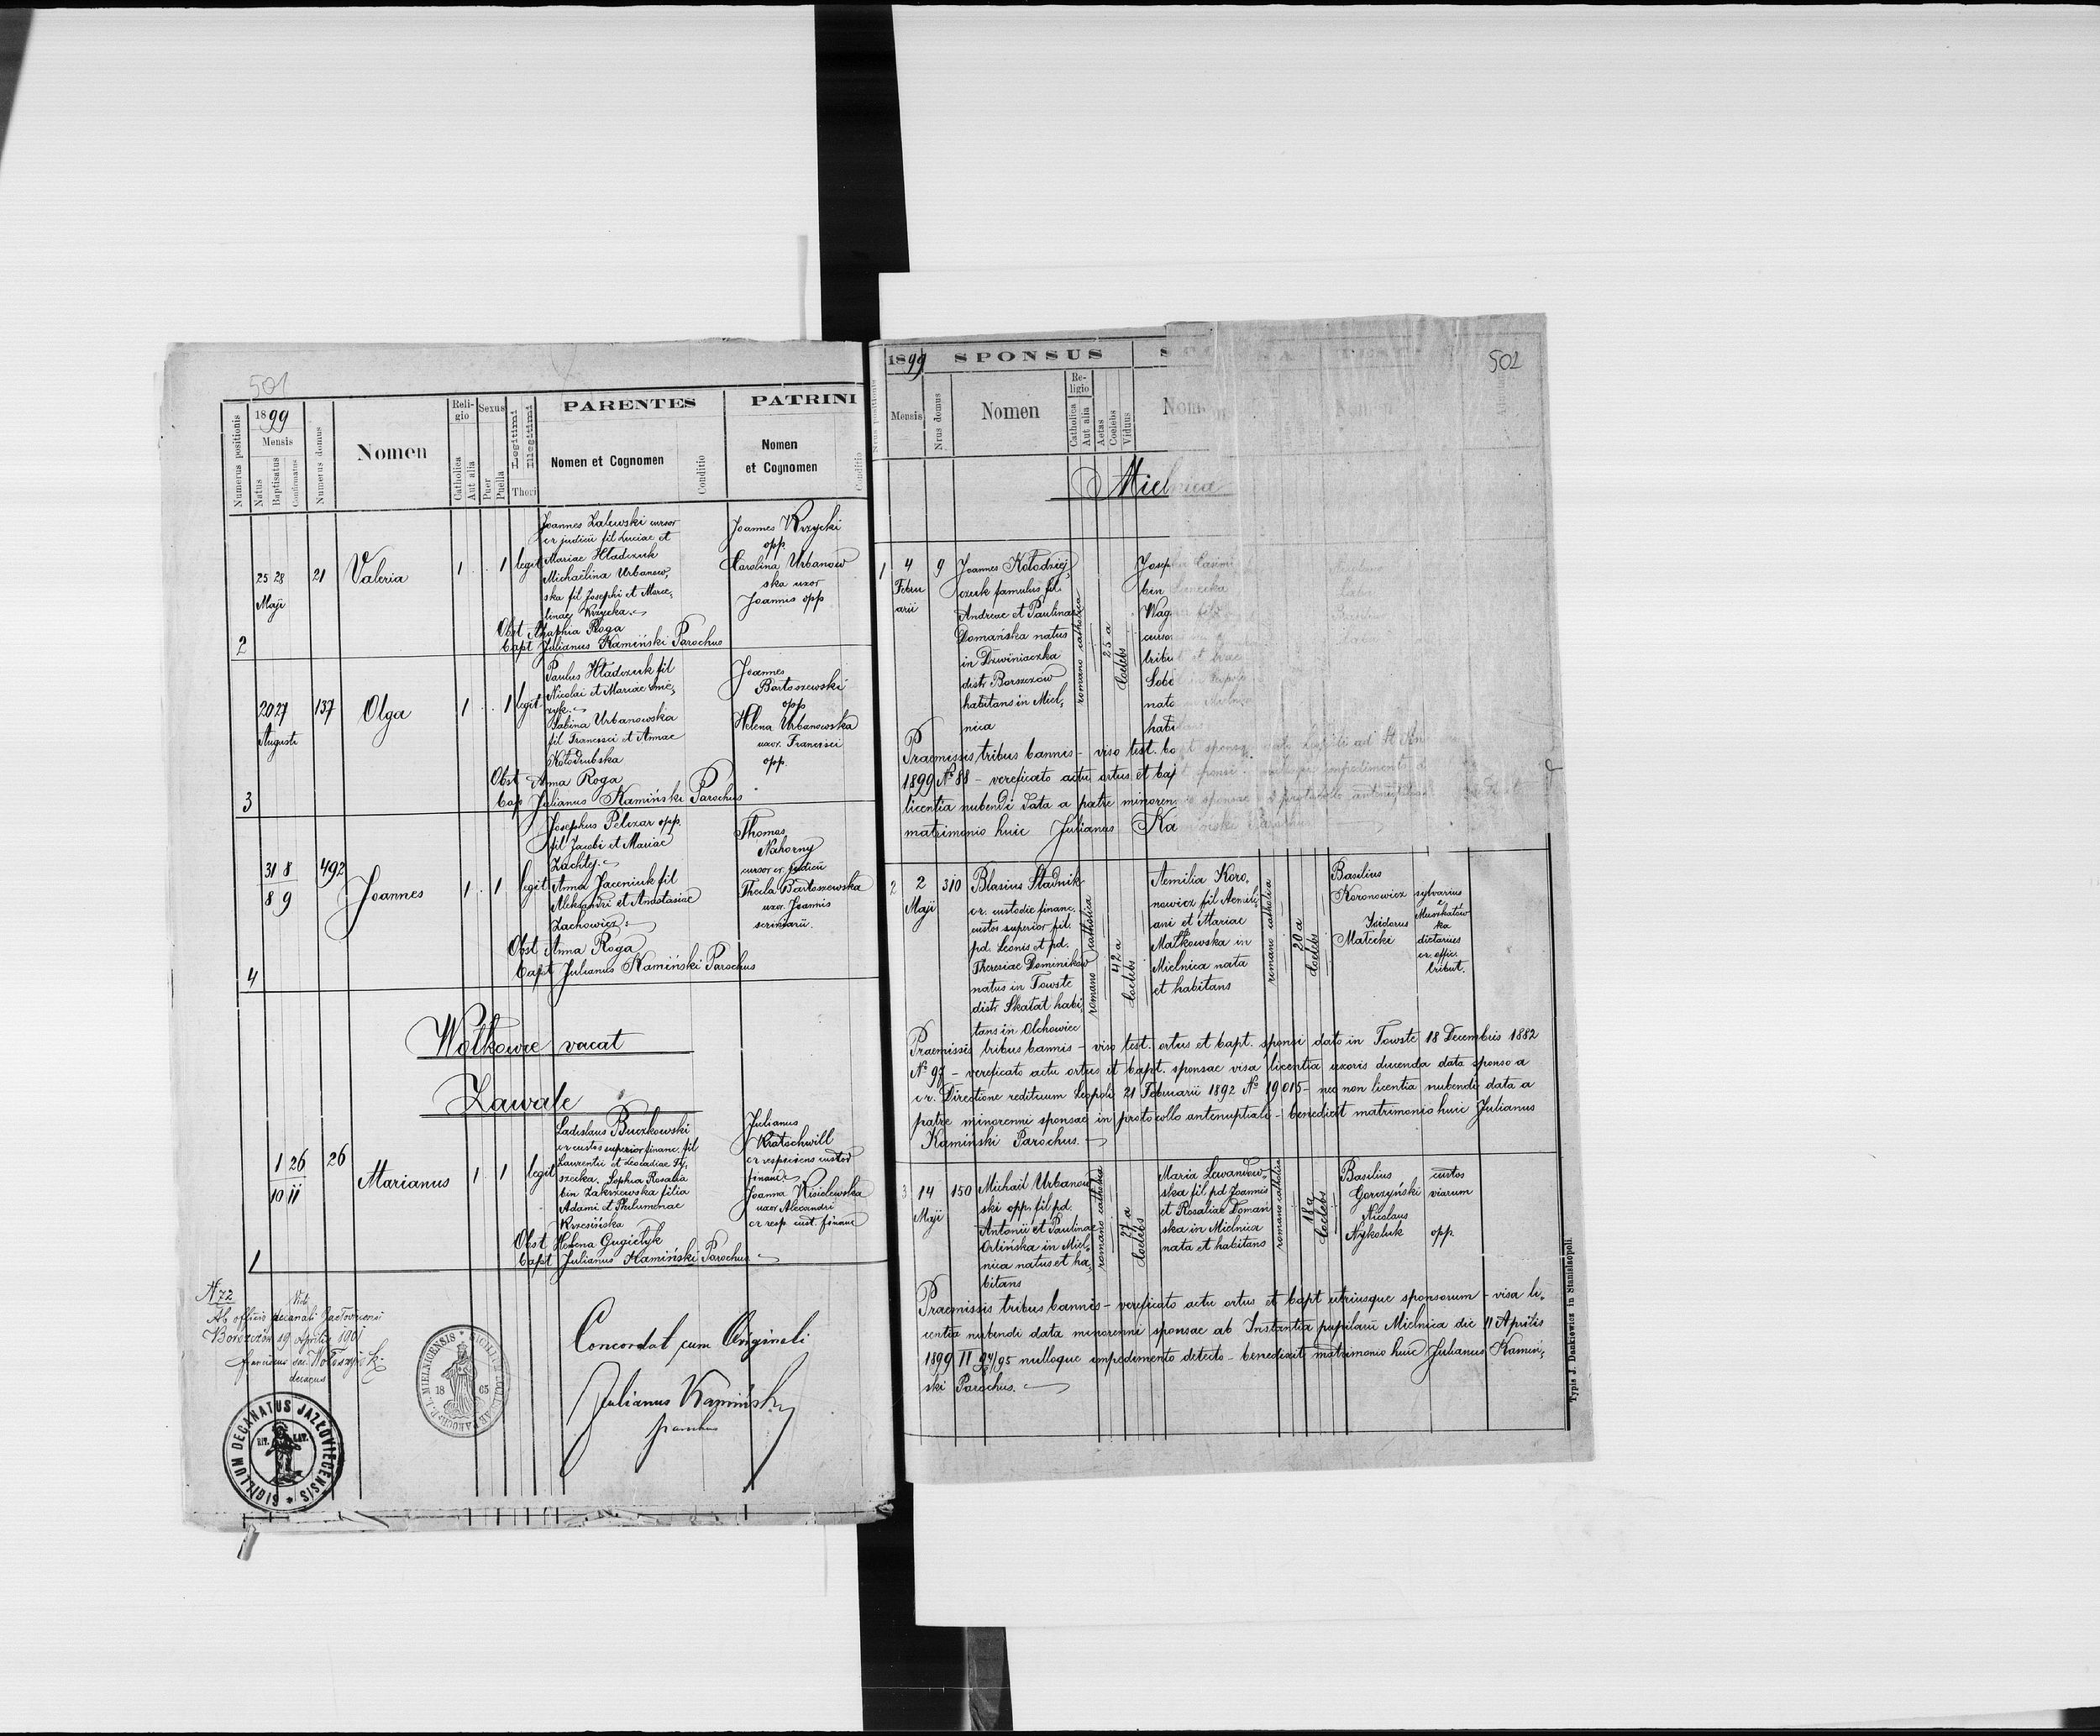 501
1899
PARENTES
PATRINI
Numerus positionis
Mensis
Natus
Baptisatus
Confirmatus
Numerus domus
Nomen
Religio
Catholica
Aut alia
Sexus
Puer
Puella
Legitimi
Illegitimi
Thori
Nomen et Cognomen
Conditio
Nomen
et Cognomen
Conditio
2
25 28
Maji
21
Valeria
1
1
legit
Joannes Zalewski cursor
cr judicii fil Luciae et
Mariae Hladczuk
Michaëlina Urbanow,
ska fil Josephi et Marce,
linae Krzycka
Joannes Krzycki
opp
Karolina Urbanow
ska uxor
Joannis opp
Obst Agaphia Roga
bapt Julianus Kamiński Parochus
3
20 27
Augusti
137
Olga
1
1
legit
Paulus Hładczuk fil
Nicolai et Mariae
Sabina Urbanowska
fil Francisci et Annae
Kołodrubska
Joannes
Bartoszewski
opp
Helena Urbanowska
uxor. Francisci
opp.
Obst Anna Roga
bap Julianus Kamiński Parochus
4
31 8
8 9
492
Joannes
1
1
legit
Josephus Pelczar opp.
fil Jacobi et Mariae
Zachty
Anna Jaceniuk fil
Aleksandri et Anastasiae
Zachowicz
Thomas
Nahorny
cursor cr. judicii
Thecla Bartoszewska
uxor. Joannis
scriniarii.
Obst Anna Roga
bapt Julianus Kamiński Parochus
Wołkowce vacat
Zawale
1
1 26
10 11
26
Marianus
1
1
legit
Ladislaus Buczkowski
cr custos superior financ. fil
Laurentii et Leocadiae Ty,
szecka. Sophia Rosalia
bin Zakrzewska filia
Adami et Philumenae
Krzesińska
Julianus
Kratschwill
cr respiciens custod
financ
Joanna Kisielewska
uxor Alexandri
cr resp. cust. financ
Obst Helena Gugielyk
bapt Julianus Kamiński Parochus
N 72
Vidi
Ab officio decanali Jazłoviecensi
Borszczów 19 Aprilis 1901
Franciscus
decanus
Concordat cum Originali
Julianus Kamiński
parochus
18 65
SIGILLUM DECANATUS JAZŁOVIECENSIS
RIT. LAT.
502
1899
SPONSUS
Nrus positionis
Mensis
Nrus domus
Nomen
Religio
Catholica
Aut alia
Aetas
Coelebs
Viduus
Nomen
Mielnica
1
4
Febru
arii
9
Joannes Kołodziej,
czuk famulus fil
Andreae et Paulinae
Domańska natus
in Dźwiniaczka
distr Borszczów
habitans in Miel,
nica
romano catholica
25 a
Coelebs
Praemissis tribus bannis – viso test.
1899 No 88 – vereficato actu ortus et bap
licentia nubendi data a patre minoren
matrimonio huic Julianus Ka
2
2
Maji
310
Blasius Stadnik
cr. custodie financ.
custos superior fil.
pd. Leonis et pd.
Theresiae Dominików
natus in Towste
distr Skałat habi,
tans in Olchowiec
romano catholica
42 a
Coelebs
Aemilia Koro,
nowicz fil Aemili,
ani et Mariae
Małkowska in
Mielnica nata
et habitans
romano catholica
20 a
Coelebs
Basilius
Koronowicz
Isidorus
Małecki
sylvarius
e Muszkatów
ka
dietarius
cr. offic.
tribut.
Praemissis tribus bannis – viso test. ortus et bapt. sponsi dato in Towste 18 Decembris 1882
No 97 – vereficato actu ortus et bapt. sponsae visa licentia uxoris ducenda data sponso a
cr. Directione redituum Leopoli 21 Februarii 1892 No 19015 – nec non licentia nubendi data a
patre minorenni sponsae in protocollo antenuptiali – benedixit matrimonio huic Julianus
Kamiński Parochus.
3
14
Maji
150
Michael Urbanow
ski opp. fil pd.
Antonii et Paulinae
Orlińska in Miel,
nica natus et ha,
bitans
romano catholica
27 a
Coelebs
Maria Lewandow,
ska fil. pd Joannis
et Rosaliae Doman
ska in Mielnica
nata et habitans
romano catholica
18 a
Coelebs
Basilius
Gorczyński
Nicolaus
Nykoluk
custos
viarum
opp.
Praemissis tribus bannis – vereficato actu ortus et bapt utriusque sponsorum – visa li,
centia nubendi data minorenni sponsae ab Instantia pupilarii Mielnica die 11 Aprilis
1899 II 94/95 nulloque impedimento detecto – benedixit matrimonio huic Julianus Kamiń,
ski Parochus.
Typis J. Dankiewicz in Stanislaopoli.